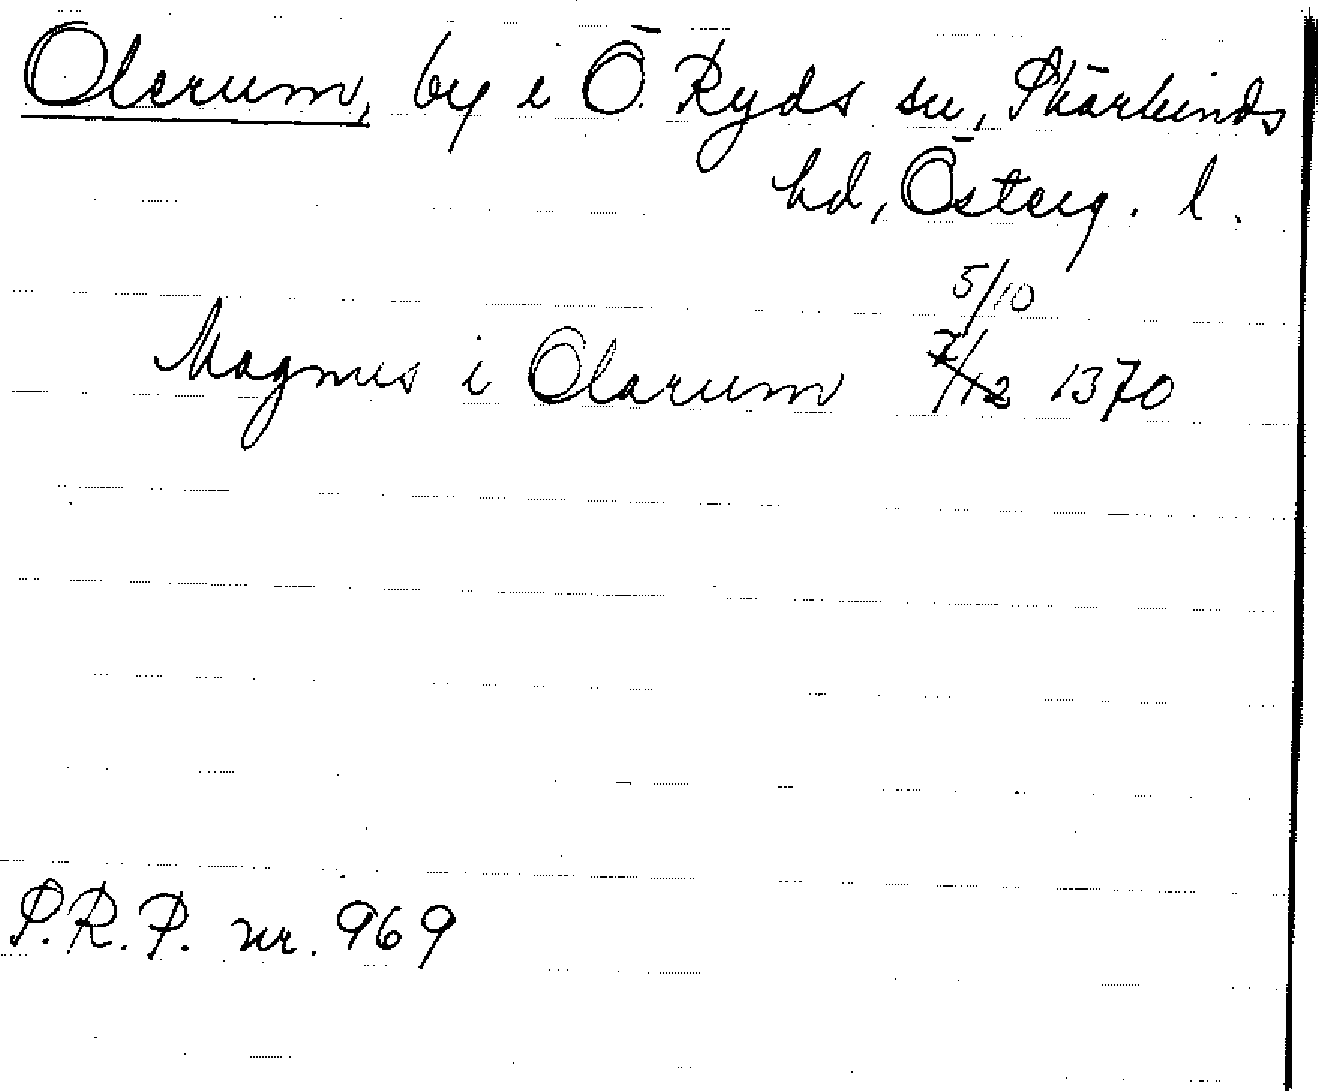 Olerum, by i Ö. Ryds sn, Skärkinds
hd, Österg. l.
5/10
Magnus i Olarum 7/12 1370
S.R.P. nr. 969